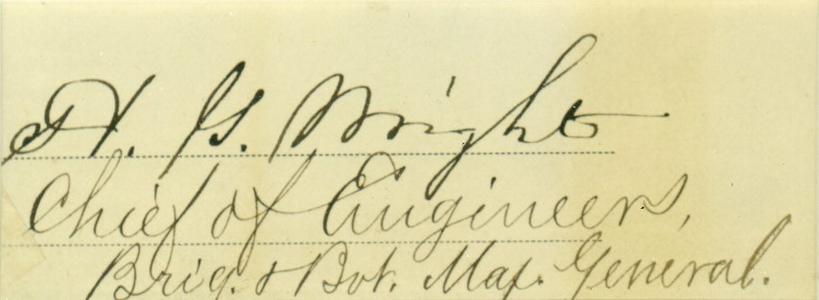 H. G. Wright
Chief of Engineers,
Brig. & Bvt. Maj. General.